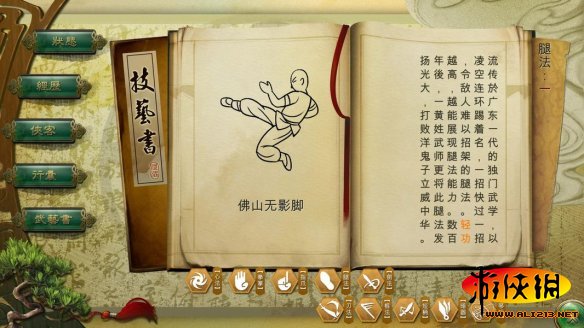 狀態
經歷
俠客
行囊
武藝書
技藝書
佛山无影脚
腿法：一
流传於广东一代的独门武学，以
凌空连环踢着名，一招快过一招
，令敌人难以招架的腿法。轻功
越高，越能展现腿法能力。数百
年後，一黄姓武师更将此腿法发
扬光大，打败洋鬼子立威中华。
游侠网
WWW.ALI213.NET